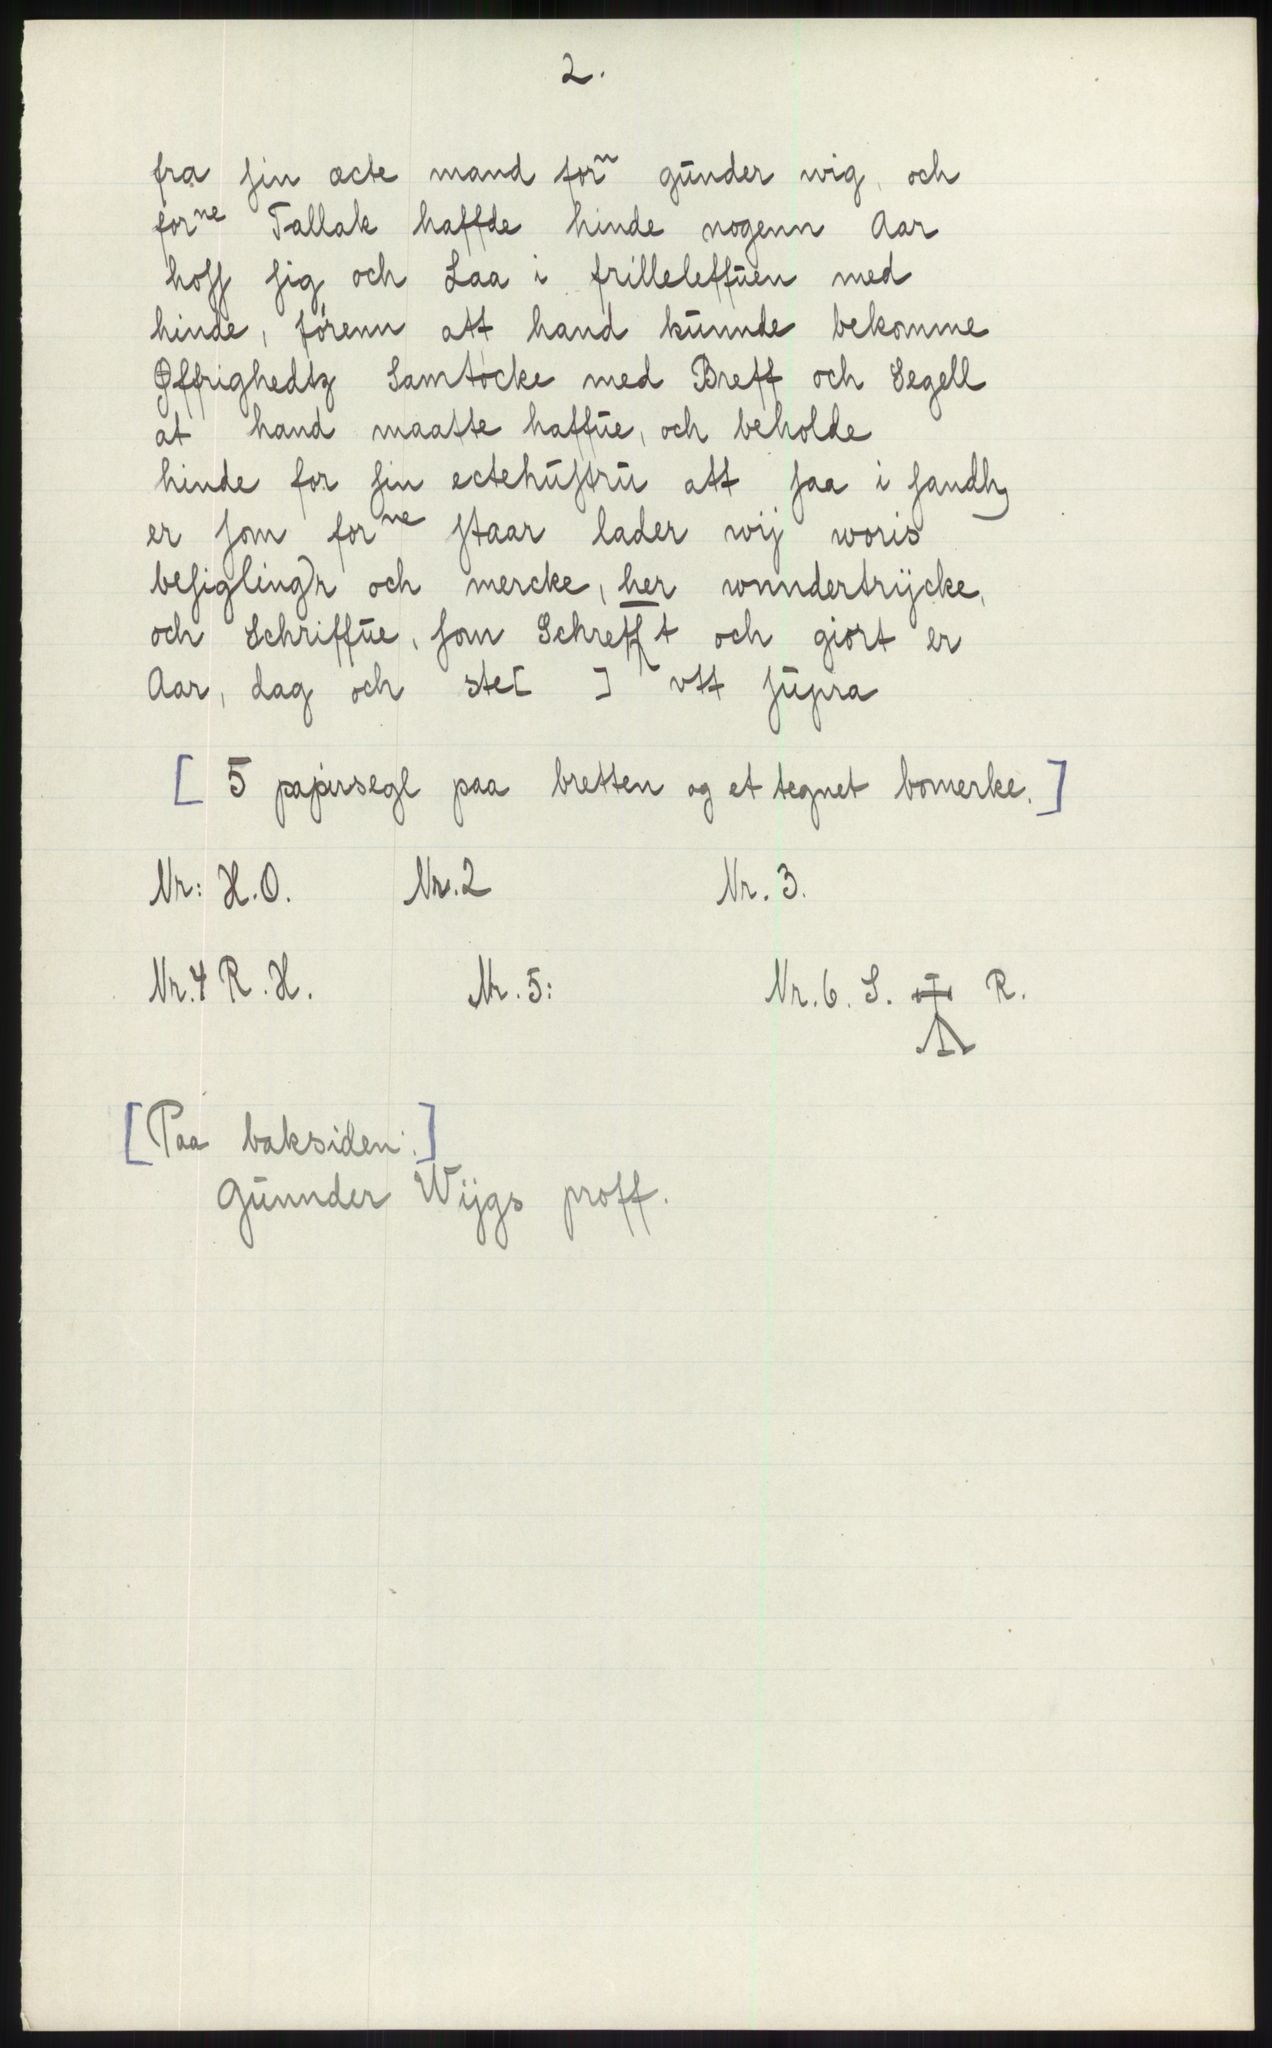 2.
fra sin ecte mand forⁿ gúnder wig, och
forⁿᵉ Tallak haffde hinde nogenn Aar
hoss sig och Laa i frilleleffúen med
hinde, förenn att hand kúnnde bekomme
Øffrighedtz Samtöcke med Breff och Segell
at hand maatte haffúe, och beholde
hinde for sin ectehústrú att saa i sandh
er som forⁿᵉ staar lader wij woris
besigling'r och mercke, her wnndertrÿcke,
och Schriffúe, som Schrefft och giort er
Aar, dag och ste[ ] vtt súpra
[ 5 papirsegl paa bretten og et tegnet bomerke. ]
Nr: H.O. Nr. 2 Nr. 3.
Nr. 4 R. H. Nr. 5: Nr. 6. S. R.
[Paa baksiden:]
Gúnnder Wijgs proff.